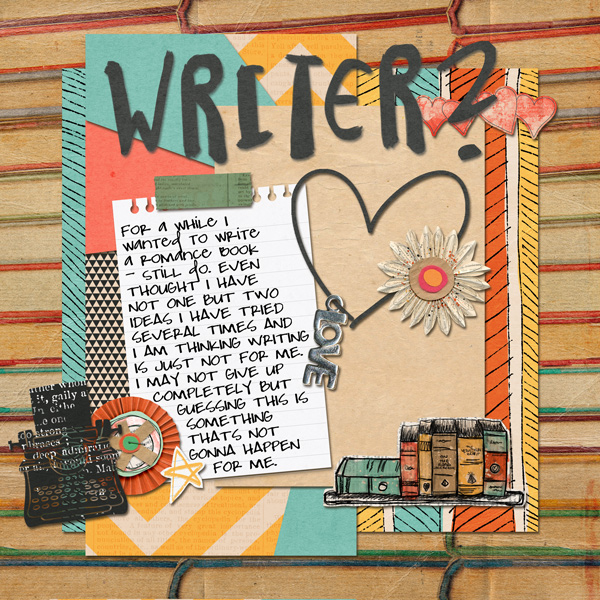 WRITER?
FOR A WHILE I
WANTED TO WRITE
A ROMANCE BOOK
- STILL DO. EVEN
THOUGHT I HAVE
NOT ONE BUT TWO
IDEAS I HAVE TRIED
SEVERAL TIMES AND
I AM THINKING WRITING
IS JUST NOT FOR ME.
I MAY NOT GIVE UP
COMPLETELY BUT
GUESSING THIS IS
SOMETHING
THATS NOT
GONNA HAPPEN
FOR ME.
LOVE